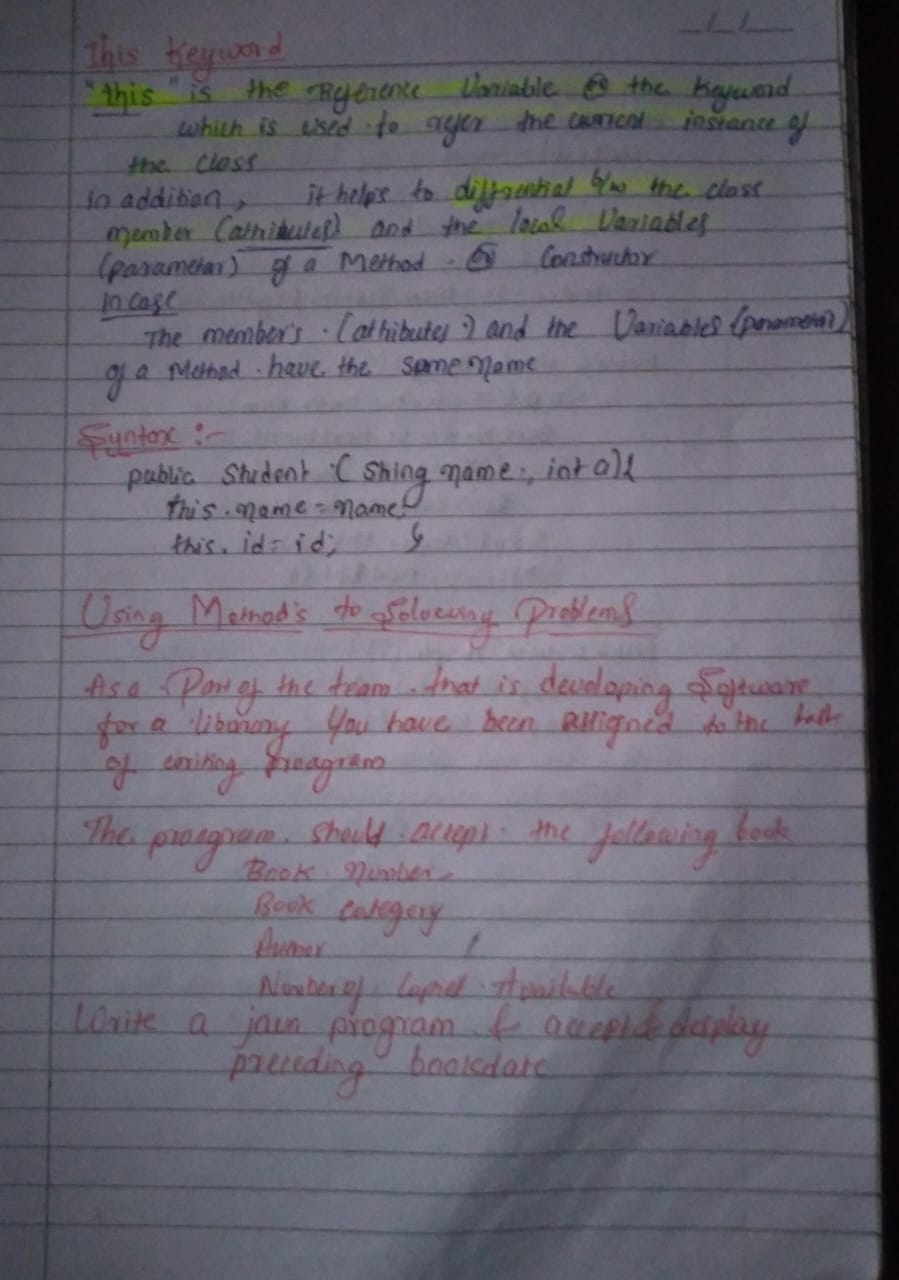 This Keyword
"this" is the Reference Variable or the Keyword
which is used to refer the current instance of
the class
in addition, it helps to diffrential b/w the class
member (attributes) and the local Variables
(parameter) of a Method or Constructor
in case
The member's (attributes) and the Variables (parameter)
of a Method have the same name
Syntax :-
public Student (String name, int
this.name = name;
this.id = id;
Using Method's to Problems
As a Part of the team that is developing Software
for a You have been assigned to the
of writing
The should accept the following book
Book Number
Book Category
Number of Copies Available
Write a java program & accept & display
preceding